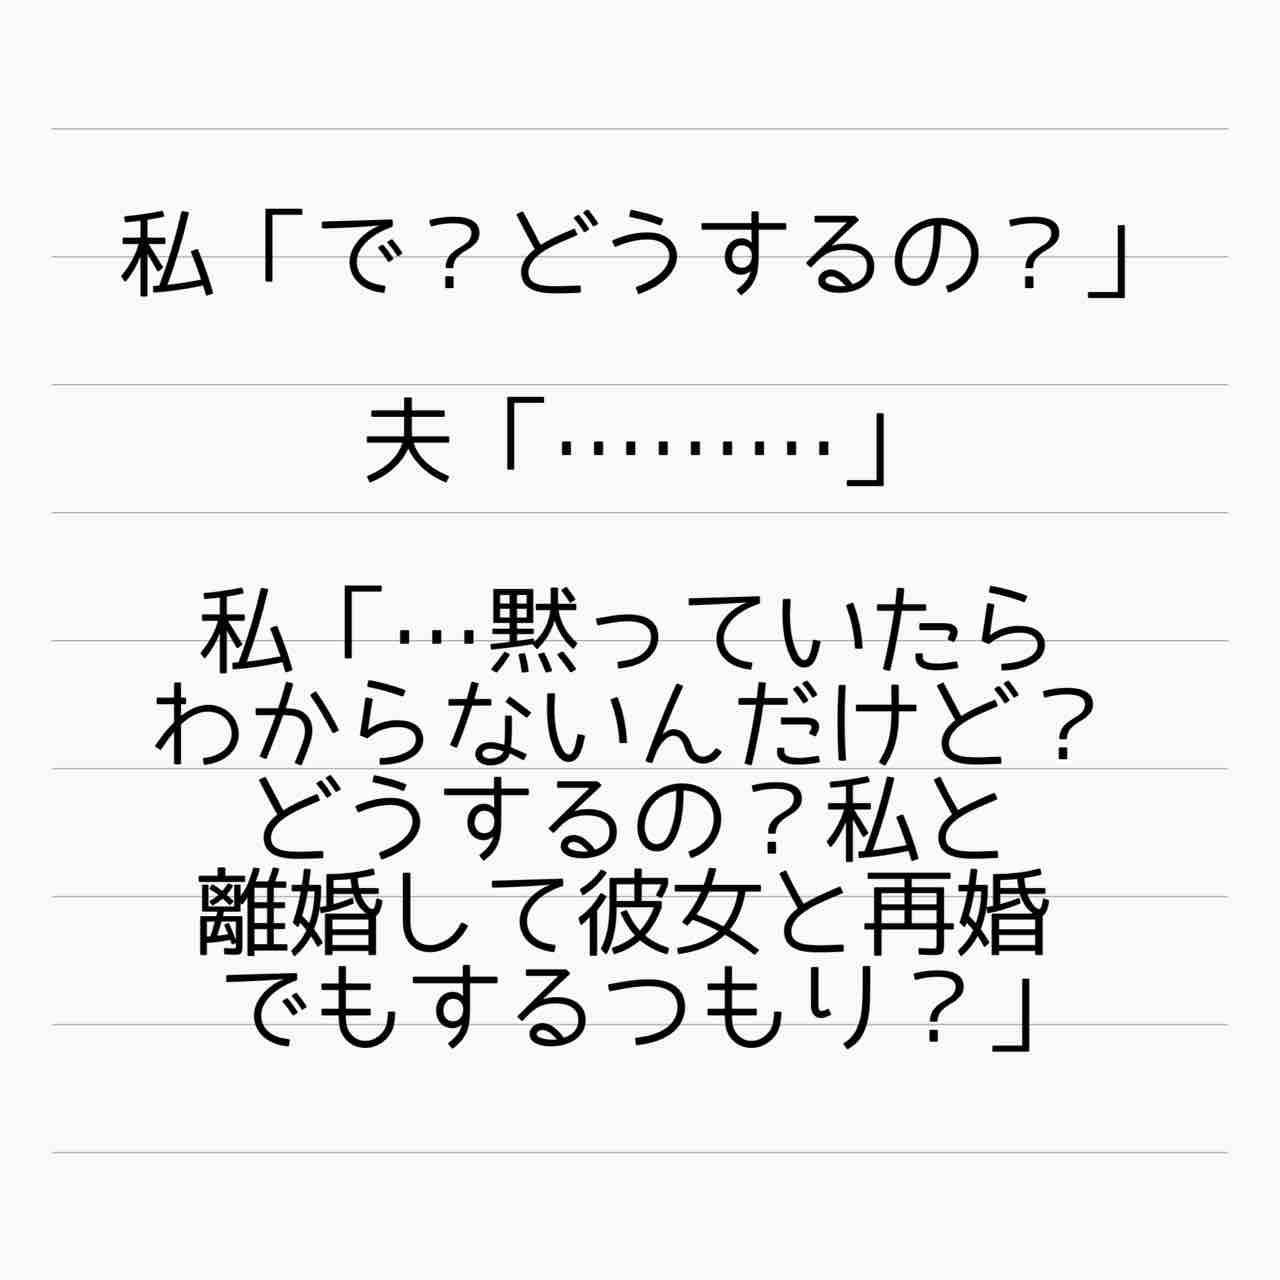 私「で？どうするの？」
夫「………」
私「…黙っていたら
わからないんだけど？
どうするの？私と
離婚して彼女と再婚
でもするつもり？」